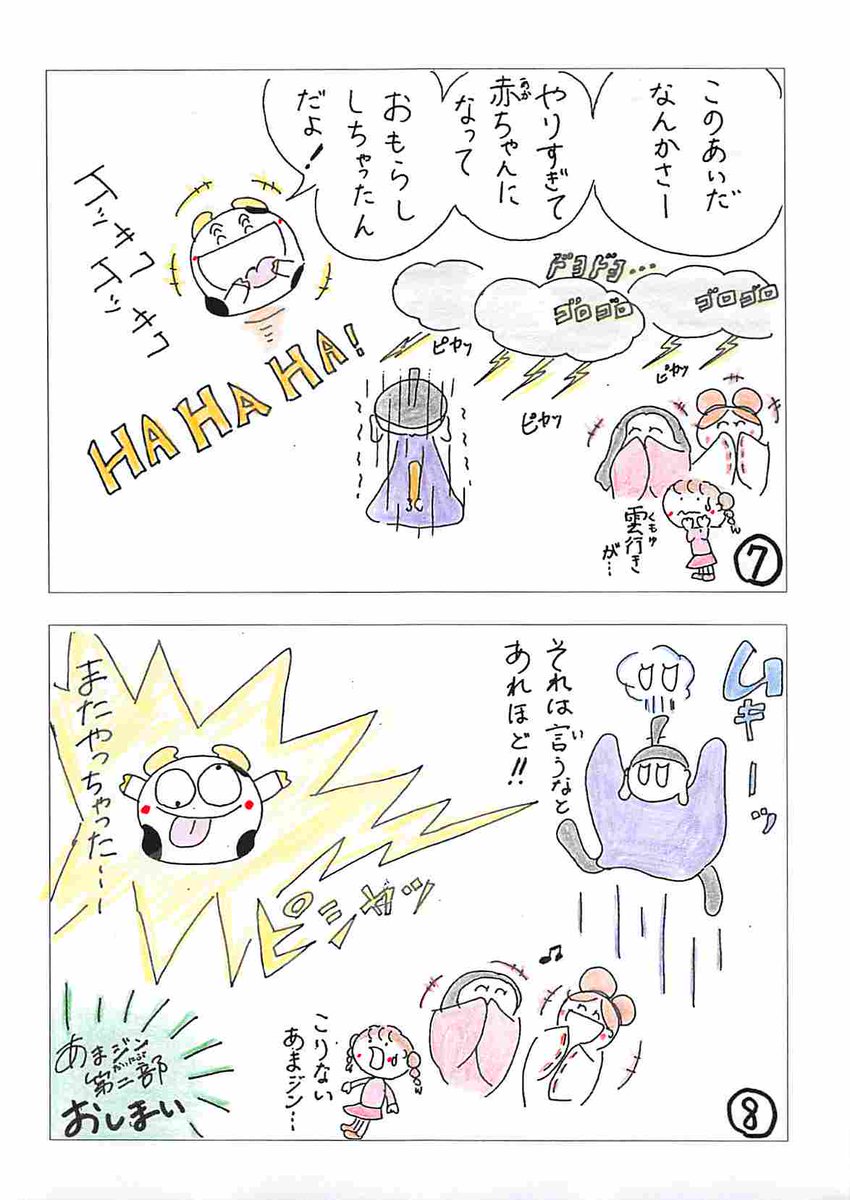 このあいだ
なんかさー
やりすぎて
赤ちゃんに
あか
なって
おもらし
しちゃったん
だよ！
ケッキャ
ケッキャ
HA HA HA!
ドヨドヨ…
ゴロゴロ
ゴロゴロ
ピカッ
ピカッ
ピカッ
雲行き
くもゆ
が…
⑦
ムキーッ
それは言うなと
い
あれほど!!
またやっちゃった〜〜
ピシャッ
こりない
あまジン…
あまジン
第二部
だいにぶ
おしまい
⑧